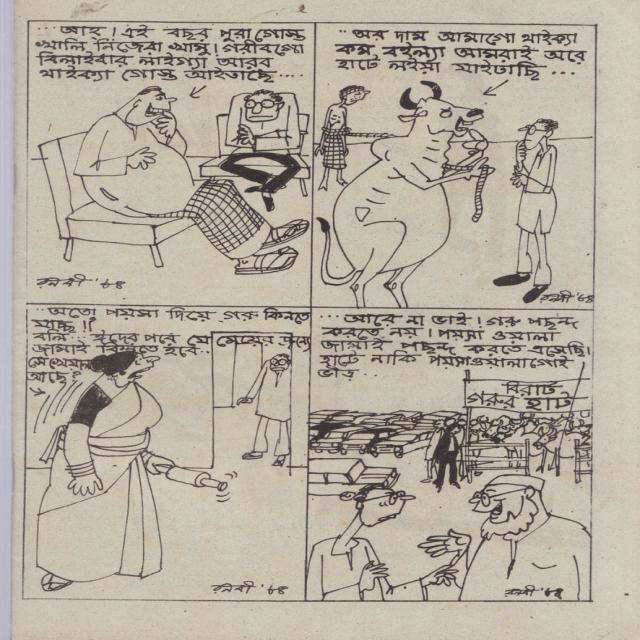 ...আহ! এই বছর পুরা গোস্ত
খালি নিজেরা খামু! গরীবগো
বিলাইবার লাইগ্যা আরব
থাইক্যা গোস্ত আইতাছে...
রনবী '৮৪
"অর দাম আমাগো থাইক্যা
কম বইল্যা আমরাই অরে
হাটে লইয়া যাইতাছি...
রনবী '৮৪
...অতো পয়সা দিয়ে গরু কিনতে
যাচ্ছ!!
বলি.. ঈদের পরে যে মেয়ের জন্যে
জামাই কিনতে হবে..
সে খেয়াল
আছে?
রনবী '৮৪
...আরে না ভাই! গরু পছন্দ
করতে নয়। পয়সা ওয়ালা
জামাই পছন্দ করতে এসেছি।
হাটে নাকি পয়সাওয়ালাগোই
ভীড়...
বিরাট
গরুর হাট
রনবী '৮৪